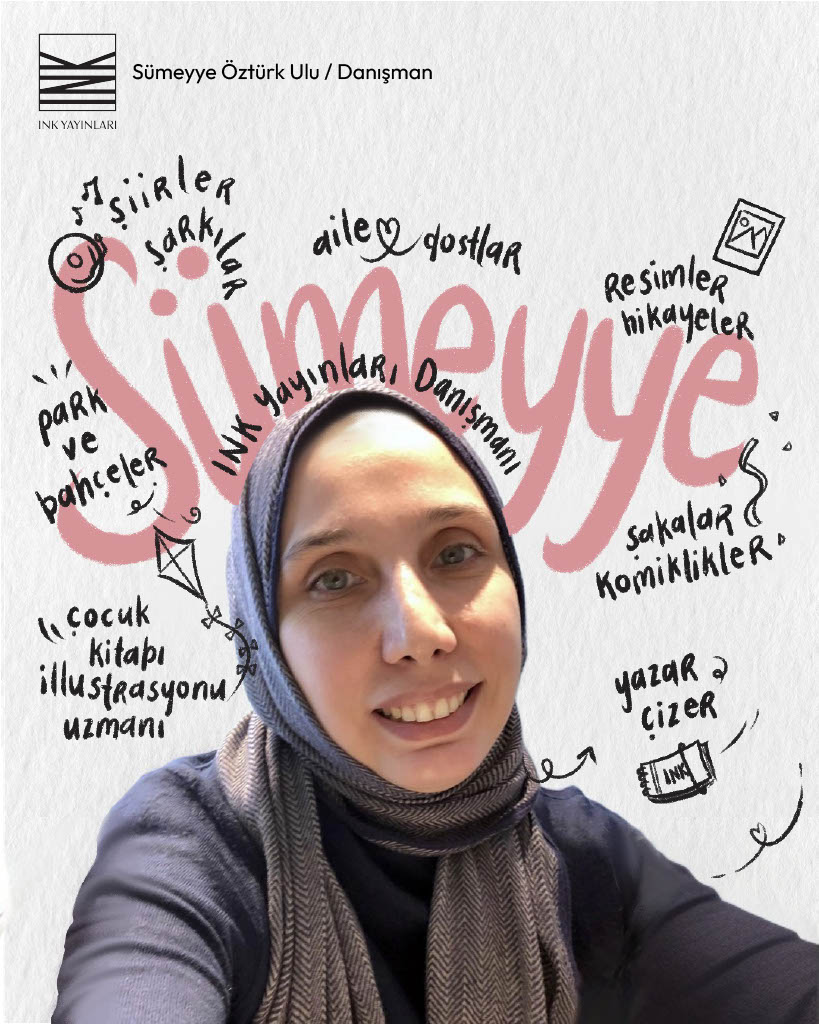 INK YAYINLARI
Sümeyye Öztürk Ulu / Danışman
şiirler
şarkılar
aile dostlar
resimler
hikayeler
Sümeyye
INK Yayınları Danışmanı
park
ve
bahçeler
şakalar
komiklikler
çocuk
kitabı
illustrasyonu
uzmanı
yazar
çizer
INK